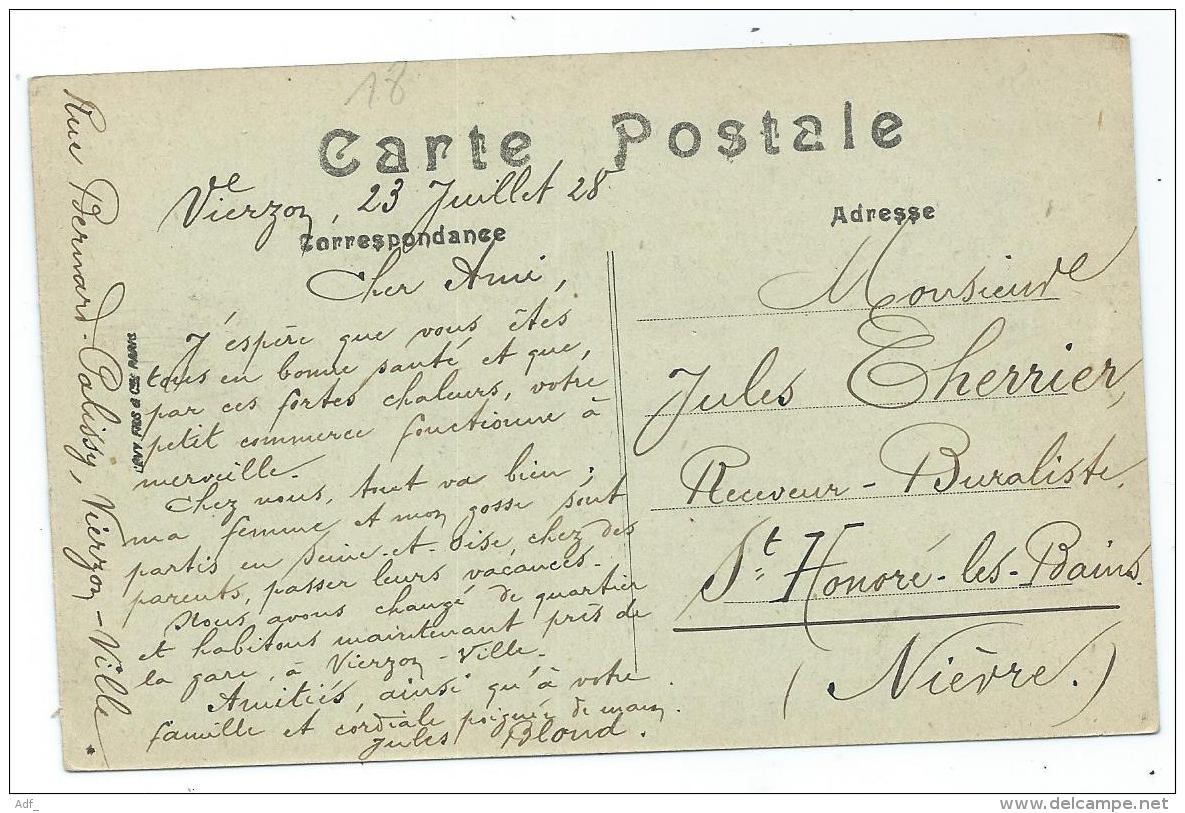 18
Carte Postale
Vierzon, le 23 Juillet 28
Correspondance
Cher Ami,
J'espère que vous êtes
tous en bonne santé et que,
par ces fortes chaleurs, votre
petit commerce fonctionne à
merveille.
Chez nous, tout va bien ;
ma femme et mon gosse sont
partis en Seine-et-Oise, chez des
parents, passer leurs vacances.
Nous avons changé de quartier
et habitons maintenant près de
la gare, à Vierzon-Ville.
Amitiés, ainsi qu'à votre
famille et cordiale poignée de main.
Jules Blond.
Rue Bernard-Palissy, Vierzon-Ville.
Adresse
Monsieur
Jules Eherrier,
Receveur-Buraliste,
St Honoré-les-Bains.
(Nièvre.)
LEVY FILS & CIE PARIS
Adf_
www.delcampe.net